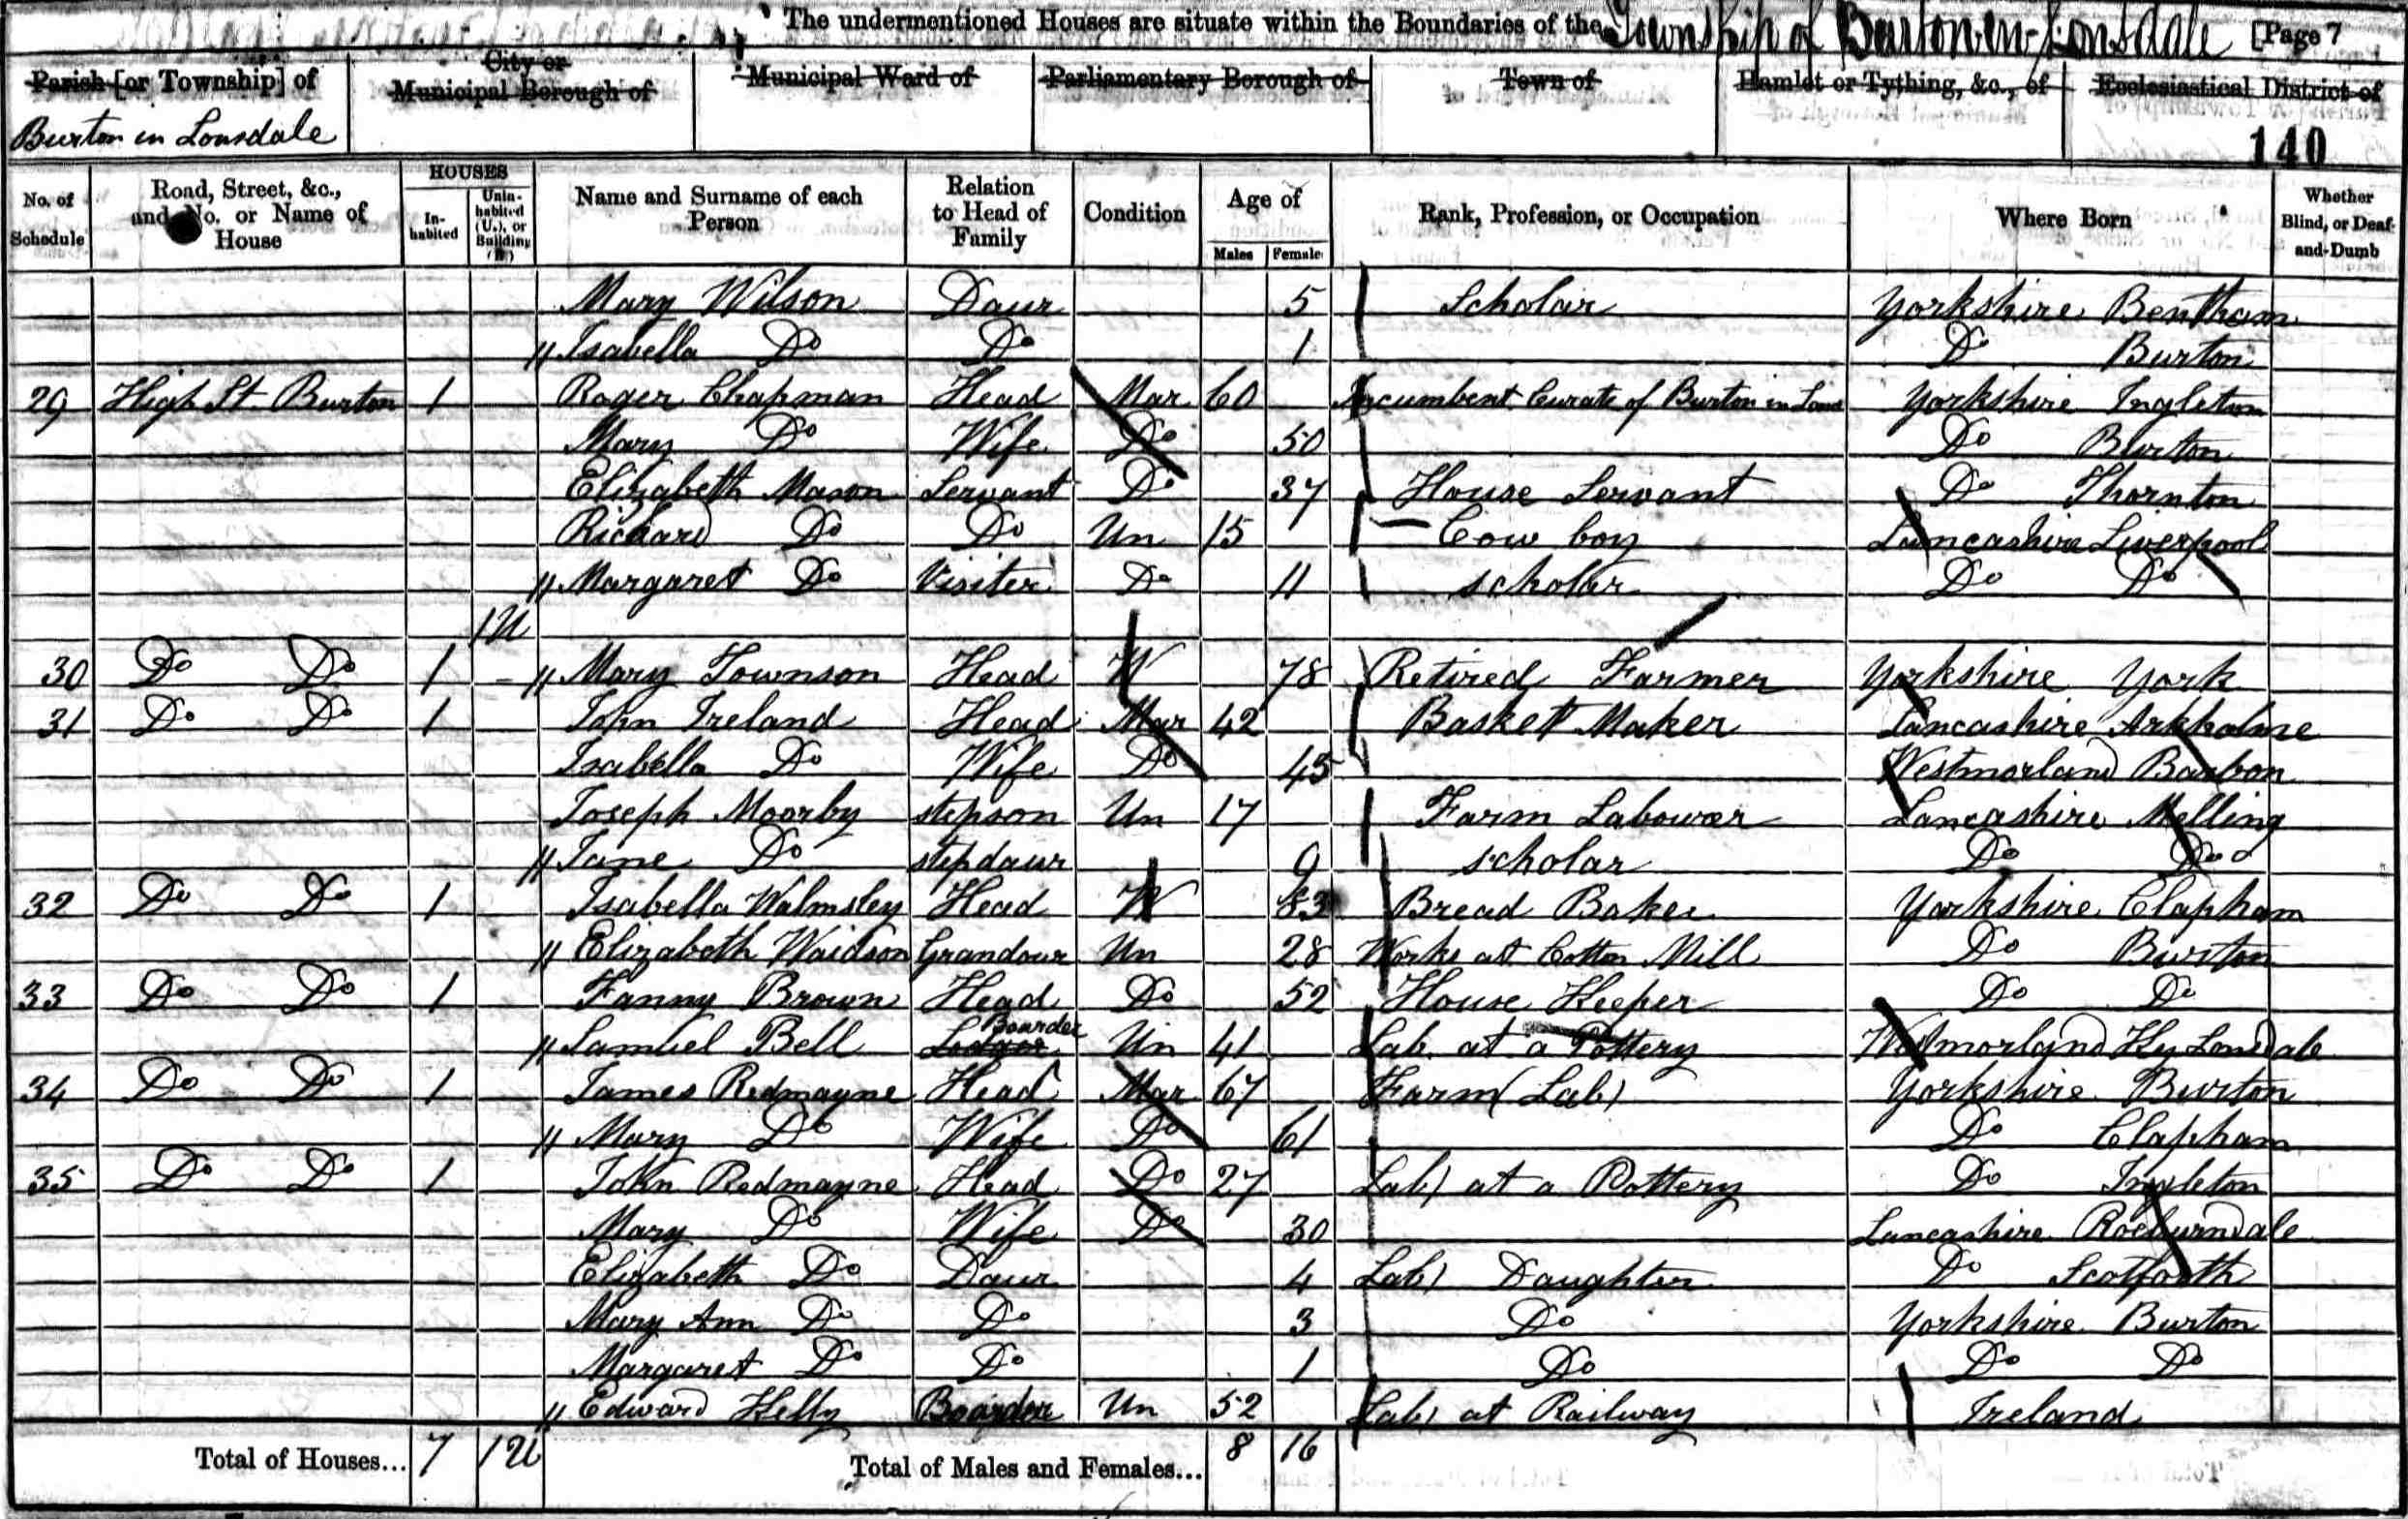 The undermentioned Houses are situate within the Boundaries of the Township of Burton-in-Lonsdale [Page 7
Parish [or Township] of
City or Municipal Borough of
Municipal Ward of
Parliamentary Borough of
Town of
Hamlet or Tything, &c., of
Ecclesiastical District of
Burton in Lonsdale
140
No. of Schedule
Road, Street, &c., and No. or Name of House
HOUSES
Inhabited
Uninhabited (U.), or Building (B.)
Name and Surname of each Person
Relation to Head of Family
Condition
Age of
Males
Female
Rank, Profession, or Occupation
Where Born
Whether Blind, or Deaf-and-Dumb
Mary Wilson Daur 5 Scholar Yorkshire Bentham
" Isabella Do Do 1 Do Burton
29 High St Burton 1 Roger Chapman Head Mar 60 Incumbent Curate of Burton in Lons Yorkshire Ingleton
Mary Do Wife Do 50 Do Burton
Elizabeth Mason Servant Do 37 House Servant Do Thornton
Richard Do Do Un 15 Cow boy Lancashire Liverpool
" Margaret Do Visiter Do 11 scholar Do Do
1U
30 Do Do 1 " Mary Townson Head W 78 Retired Farmer Yorkshire York
31 Do Do 1 John Ireland Head Mar 42 Baskett Maker Lancashire Arkholme
Isabella Do Wife Do 45 Westmorland Barbon
Joseph Moorby stepson Un 17 Farm Labourer Lancashire Melling
" Jane Do stepdaur 9 scholar Do Do
32 Do Do 1 Isabella Walmsley Head W 83 Bread Baker Yorkshire Clapham
" Elizabeth Waidson Grandaur Un 28 Works at Cotton Mill Do Burton
33 Do Do 1 Fanny Brown Head Do 52 House Keeper Do Do
" Samuel Bell Lodger Boarder Un 41 Lab. at a Pottery Westmorland Ky Lonsdale
34 Do Do 1 James Redmayne Head Mar 67 Farm (Lab) Yorkshire Burton
" Mary Do Wife Do 61 Do Clapham
35 Do Do 1 John Redmayne Head Do 27 Lab) at a Pottery Do Ingleton
Mary Do Wife Do 30 Lancashire Roeburndale
Elizabeth Do Daur 4 Lab) Daughter Do Scotforth
Mary Ann Do Do 3 Do Yorkshire Burton
Margaret Do Do 1 Do Do Do
" Edward Kelly Boarder Un 52 Lab) at Railway Ireland
Total of Houses... 7 1U Total of Males and Females... 8 16